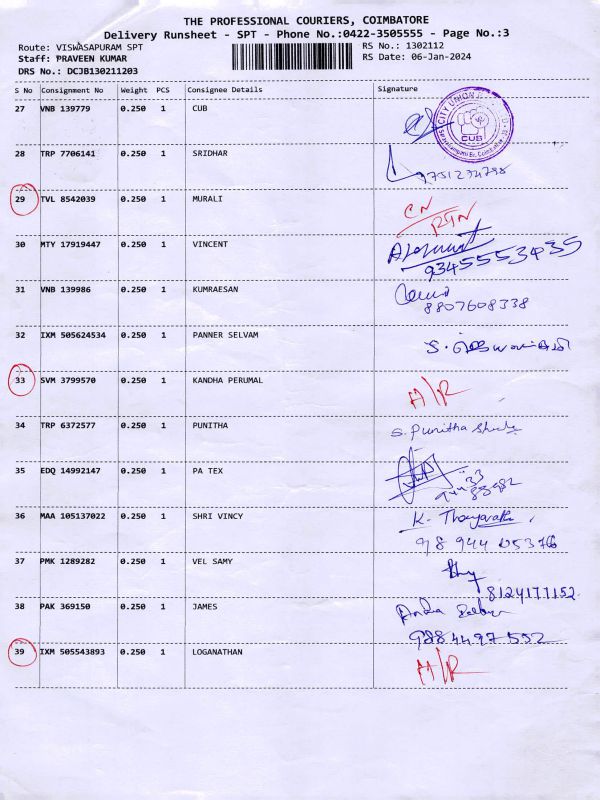 THE PROFESSIONAL COURIERS, COIMBATORE
Delivery Runsheet - SPT - Phone No.:0422-3505555 - Page No.:3
Route: VISWASAPURAM SPT
Staff: PRAVEEN KUMAR
DRS No.: DCJB130211203
RS No.: 1302112
RS Date: 06-Jan-2024
S No Consignment No Weight PCS Consignee Details Signature
27 VNB 139779 0.250 1 CUB
CITY UNION
CUB
28 TRP 7706141 0.250 1 SRIDHAR
9751234798
29 TVL 8542039 0.250 1 MURALI
CN
RTN
30 MTY 17919447 0.250 1 VINCENT
31 VNB 139986 0.250 1 KUMRAESAN
8807608338
32 IXM 505624534 0.250 1 PANNER SELVAM
33 SVM 3799570 0.250 1 KANDHA PERUMAL
A/R
34 TRP 6372577 0.250 1 PUNITHA
S. Punitha
35 EDQ 14992147 0.250 1 PA TEX
36 MAA 105137022 0.250 1 SHRI VINCY
K.
37 PMK 1289282 0.250 1 VEL SAMY
8124177152
38 PAK 369150 0.250 1 JAMES
9884497552
39 IXM 505543893 0.250 1 LOGANATHAN
A/R